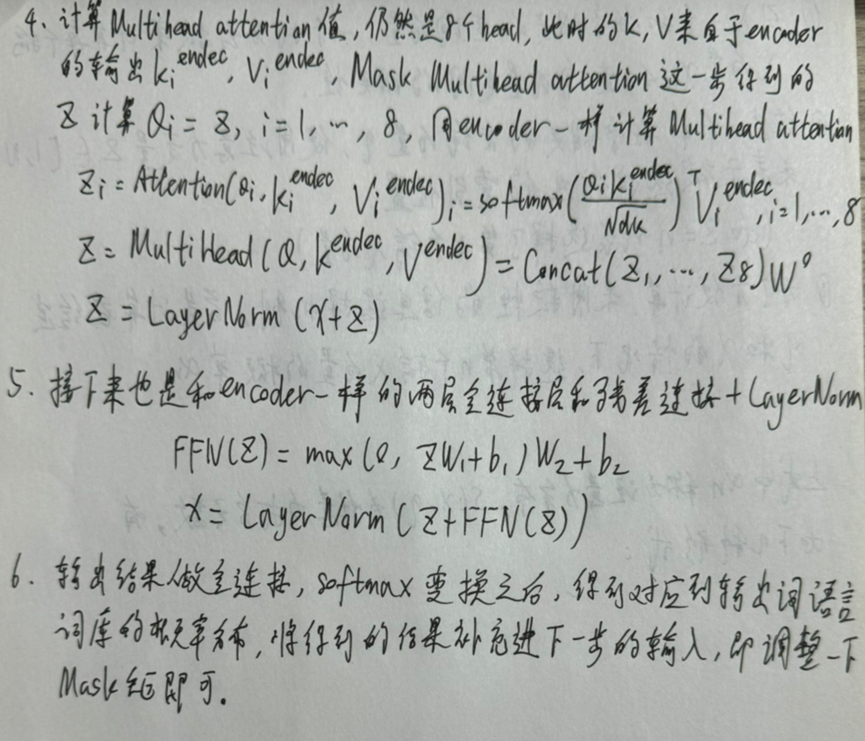 4、计算Multihead attention值,仍然是8个head,此时的K,V来自于encoder
的输出Ki^endec,Vi^endec,Mask Multihead attention这一步得到的
Z计算Qi=Z,i=1,…,8,同encoder一样计算Multihead attention
Zi=Attention(Qi,Ki^endec,Vi^endec)i=softmax(QiKi^endec/√dk)^T Vi^endec,i=1,…,8
Z=MultiHead(Q,K^endec,V^endec)=Concat(Z1,…,Z8)W^o
Z=LayerNorm(x+Z)
5、接下来也是和encoder一样的两层全连接层和残差连接+LayerNorm
FFN(Z)=max(0,ZW1+b1)W2+b2
x=LayerNorm(Z+FFN(Z))
6、输出结果做全连接,softmax变换之后,得到对应到输出词语言
词库的概率分布,将得到的结果补充进下一步的输入,即调整一下
Mask矩阵即可。